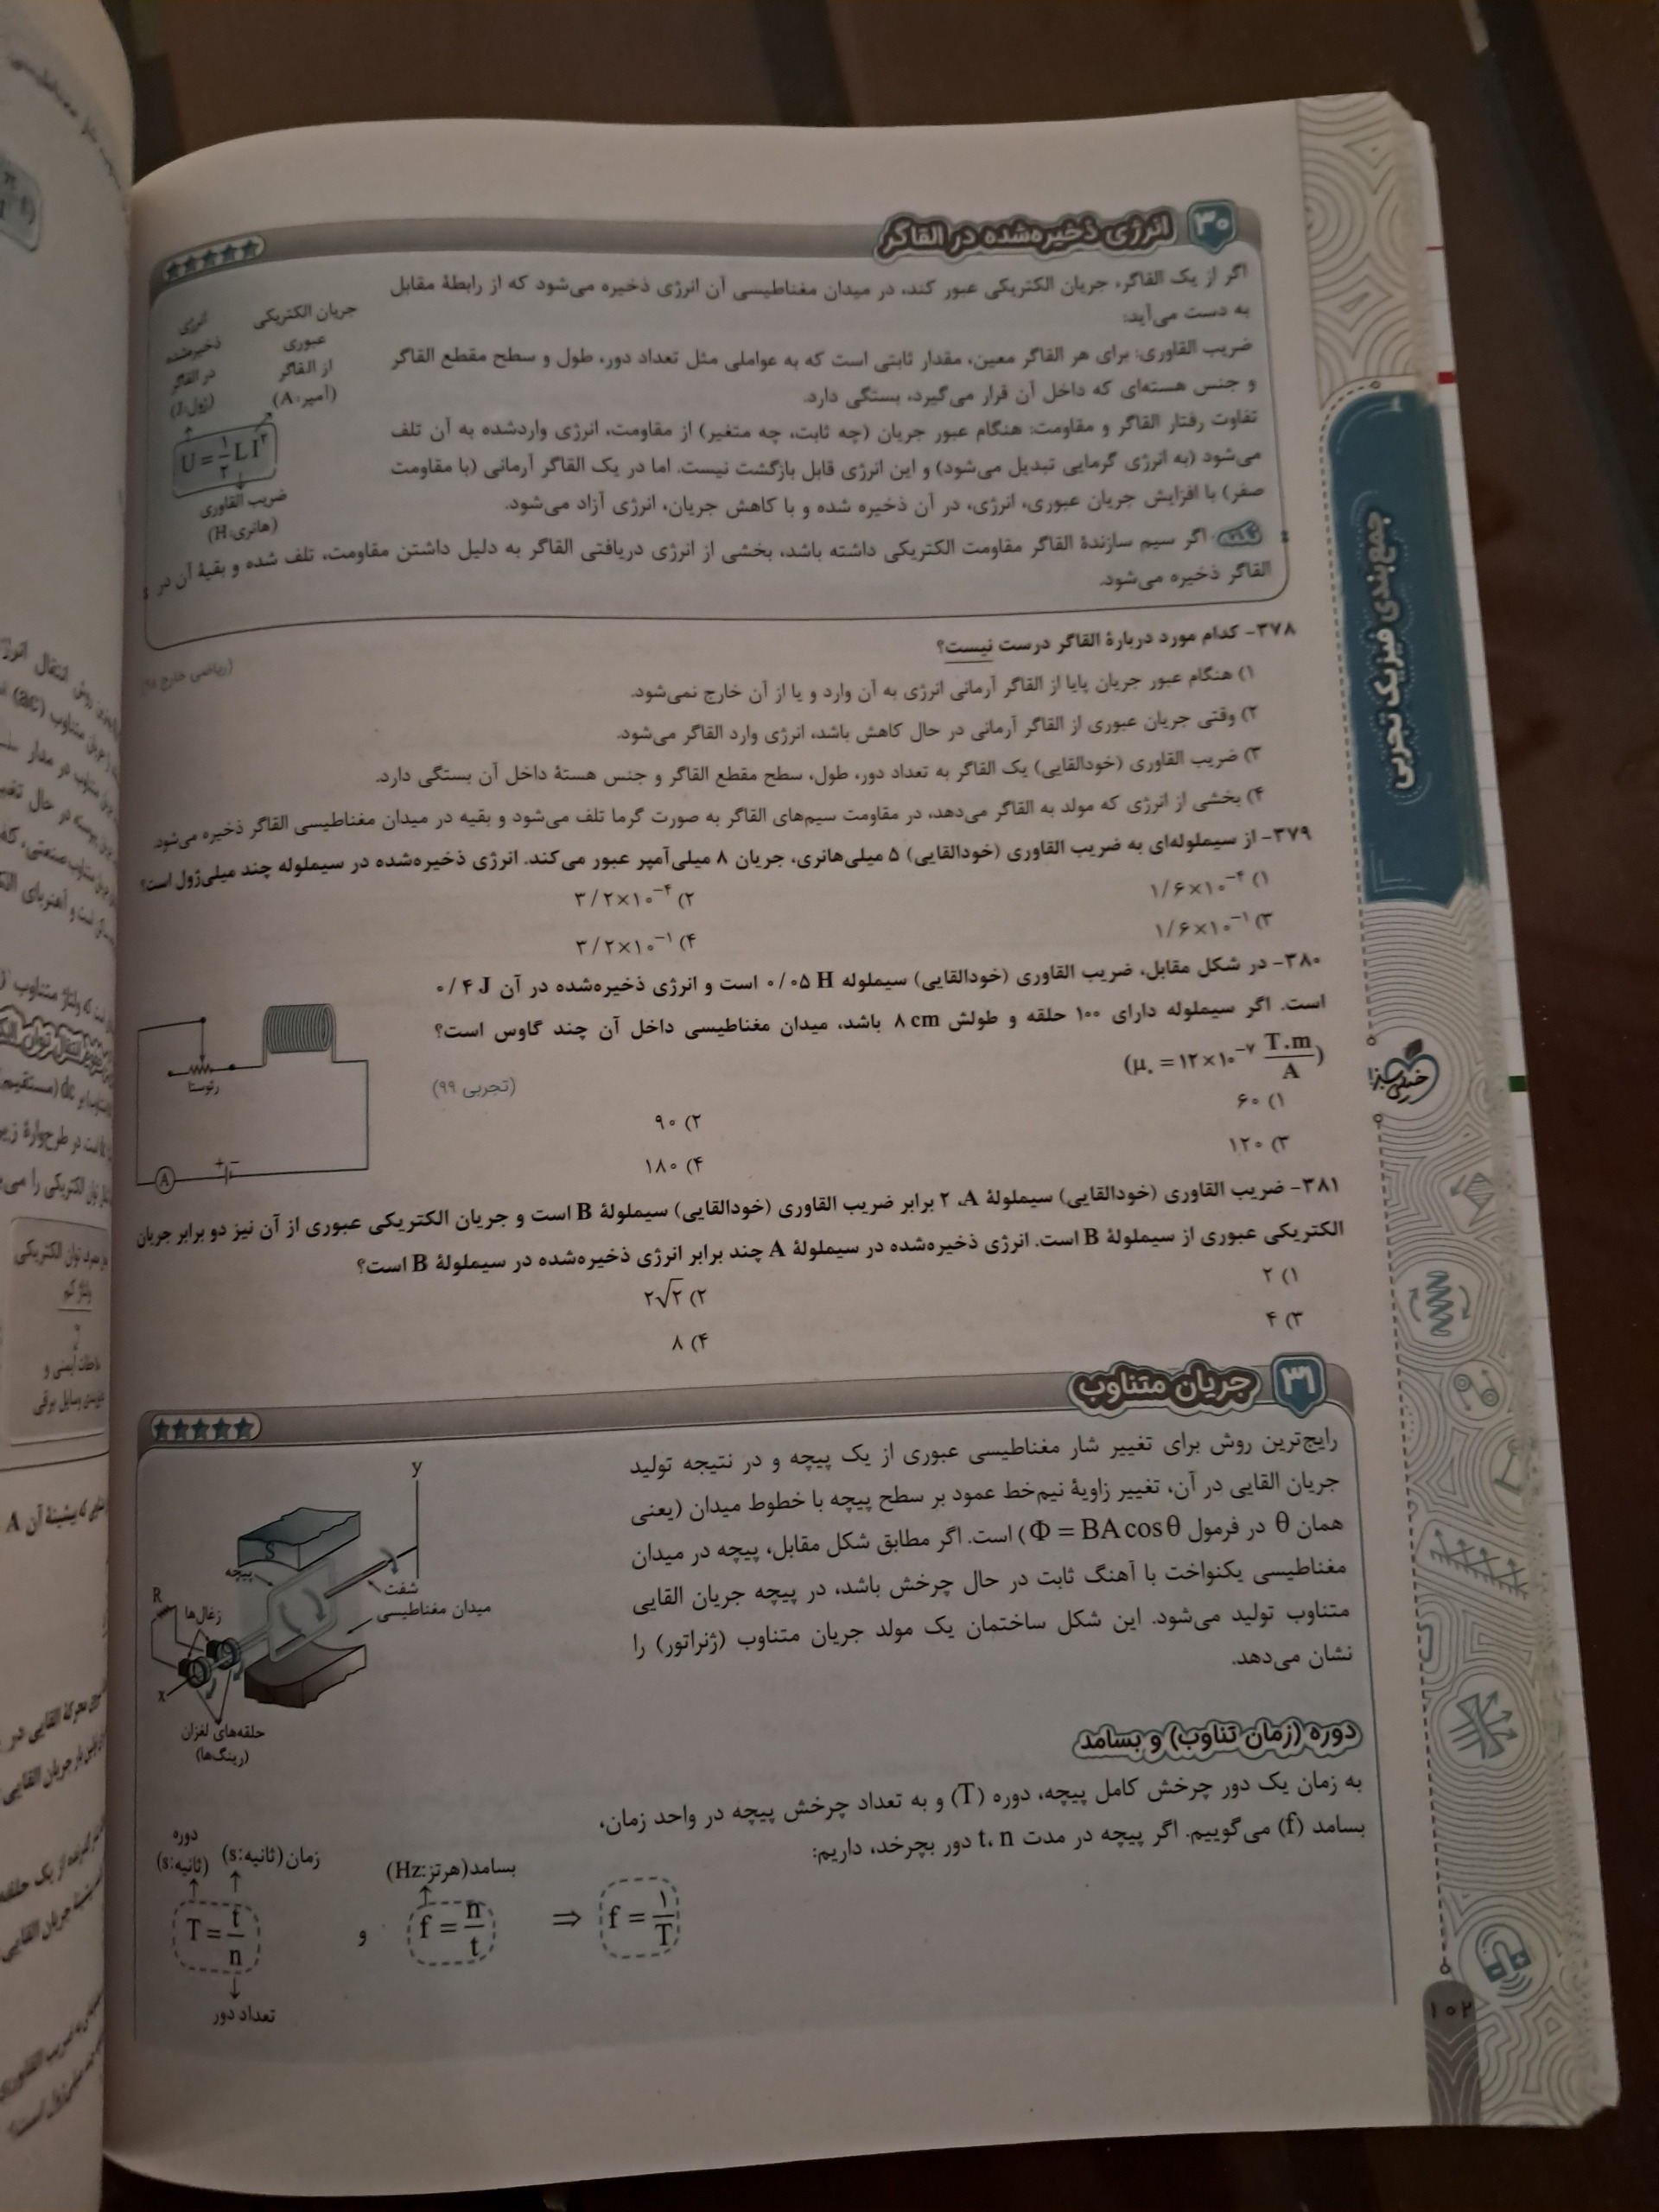 ۳۰ انرژی ذخیره‌شده در القاگر
اگر از یک القاگر، جریان الکتریکی عبور کند، در میدان مغناطیسی آن انرژی ذخیره می‌شود که از رابطهٔ مقابل
به دست می‌آید:
ضریب القاوری: برای هر القاگر معین، مقدار ثابتی است که به عواملی مثل تعداد دور، طول و سطح مقطع القاگر
و جنس هسته‌ای که داخل آن قرار می‌گیرد، بستگی دارد.
تفاوت رفتار القاگر و مقاومت: هنگام عبور جریان (چه ثابت، چه متغیر) از مقاومت، انرژی واردشده به آن تلف
می‌شود (به انرژی گرمایی تبدیل می‌شود) و این انرژی قابل بازگشت نیست. اما در یک القاگر آرمانی (با مقاومت
صفر) با افزایش جریان عبوری، انرژی، در آن ذخیره شده و با کاهش جریان، انرژی آزاد می‌شود.
اگر سیم سازندهٔ القاگر مقاومت الکتریکی داشته باشد، بخشی از انرژی دریافتی القاگر به دلیل داشتن مقاومت، تلف شده و بقیهٔ آن در
القاگر ذخیره می‌شود.
جریان الکتریکی
عبوری
از القاگر
(آمپر:A)
انرژی
ذخیره‌شده
در القاگر
(ژول:J)
U = ۱/۲ LI²
ضریب القاوری
(هانری:H)
۳۷۸- کدام مورد دربارهٔ القاگر درست نیست؟
(ریاضی خارج ۹۸)
۱) هنگام عبور جریان پایا از القاگر آرمانی انرژی به آن وارد و یا از آن خارج نمی‌شود.
۲) وقتی جریان عبوری از القاگر آرمانی در حال کاهش باشد، انرژی وارد القاگر می‌شود.
۳) ضریب القاوری (خودالقایی) یک القاگر به تعداد دور، طول، سطح مقطع القاگر و جنس هستهٔ داخل آن بستگی دارد.
۴) بخشی از انرژی که مولد به القاگر می‌دهد، در مقاومت سیم‌های القاگر به صورت گرما تلف می‌شود و بقیه در میدان مغناطیسی القاگر ذخیره می‌شود.
۳۷۹- از سیملوله‌ای به ضریب القاوری (خودالقایی) ۵ میلی‌هانری، جریان ۸ میلی‌آمپر عبور می‌کند. انرژی ذخیره‌شده در سیملوله چند میلی‌ژول است؟
۱) ۱/۶×۱۰⁻⁴
۲) ۳/۲×۱۰⁻⁴
۳) ۱/۶×۱۰⁻¹
۴) ۳/۲×۱۰⁻¹
۳۸۰- در شکل مقابل، ضریب القاوری (خودالقایی) سیملوله ۰/۰۵ H است و انرژی ذخیره‌شده در آن ۰/۴ J
است. اگر سیملوله دارای ۱۰۰ حلقه و طولش ۸ cm باشد، میدان مغناطیسی داخل آن چند گاوس است؟
(μ₀ = ۱۲×۱۰⁻⁷ T.m/A)
(تجربی ۹۹)
۱) ۶۰
۲) ۹۰
۳) ۱۲۰
۴) ۱۸۰
رئوستا
+ −
A
۳۸۱- ضریب القاوری (خودالقایی) سیملولهٔ A، ۲ برابر ضریب القاوری (خودالقایی) سیملولهٔ B است و جریان الکتریکی عبوری از آن نیز دو برابر جریان
الکتریکی عبوری از سیملولهٔ B است. انرژی ذخیره‌شده در سیملولهٔ A چند برابر انرژی ذخیره‌شده در سیملولهٔ B است؟
۱) ۲
۲) ۲√۲
۳) ۴
۴) ۸
۳۱ جریان متناوب
رایج‌ترین روش برای تغییر شار مغناطیسی عبوری از یک پیچه و در نتیجه تولید
جریان القایی در آن، تغییر زاویهٔ نیم‌خط عمود بر سطح پیچه با خطوط میدان (یعنی
همان θ در فرمول Φ = BA cosθ) است. اگر مطابق شکل مقابل، پیچه در میدان
مغناطیسی یکنواخت با آهنگ ثابت در حال چرخش باشد، در پیچه جریان القایی
متناوب تولید می‌شود. این شکل ساختمان یک مولد جریان متناوب (ژنراتور) را
نشان می‌دهد.
y
S
پیچه
شفت
میدان مغناطیسی
R
زغال‌ها
x
حلقه‌های لغزان
(رینگ‌ها)
دوره (زمان تناوب) و بسامد
به زمان یک دور چرخش کامل پیچه، دوره (T) و به تعداد چرخش پیچه در واحد زمان،
بسامد (f) می‌گوییم. اگر پیچه در مدت t، n دور بچرخد، داریم:
دوره
(ثانیه:s)
زمان (ثانیه:s)
بسامد(هرتز:Hz)
T = t/n و f = n/t ⇒ f = ۱/T
تعداد دور
جمع‌بندی فیزیک تجربی
خیلی سبز
۱۰۲